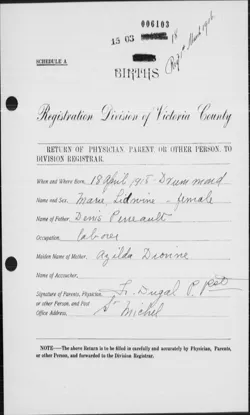 006103
15 03 18
Reg'd March 1916
SCHEDULE A
BIRTHS
Registration Division of Victoria County
RETURN OF PHYSICIAN PARENT OR OTHER PERSON, TO
DIVISION REGISTRAR.
When and Where Born, 18 April 1915 - Drummond
Name and Sex, Marie Lidwine - female
Name of Father, Denis Perreault
Occupation, laborer
Maiden Name of Mother, Azilda Dionne
Name of Accoucher,
Signature of Parents, Physician, Dugal P.
or other Person, and Post St
Office Address, Michel
NOTE.—The above Return is to be filled in carefully and accurately by Physician, Parents,
or other Person, and forwarded to the Division Registrar.